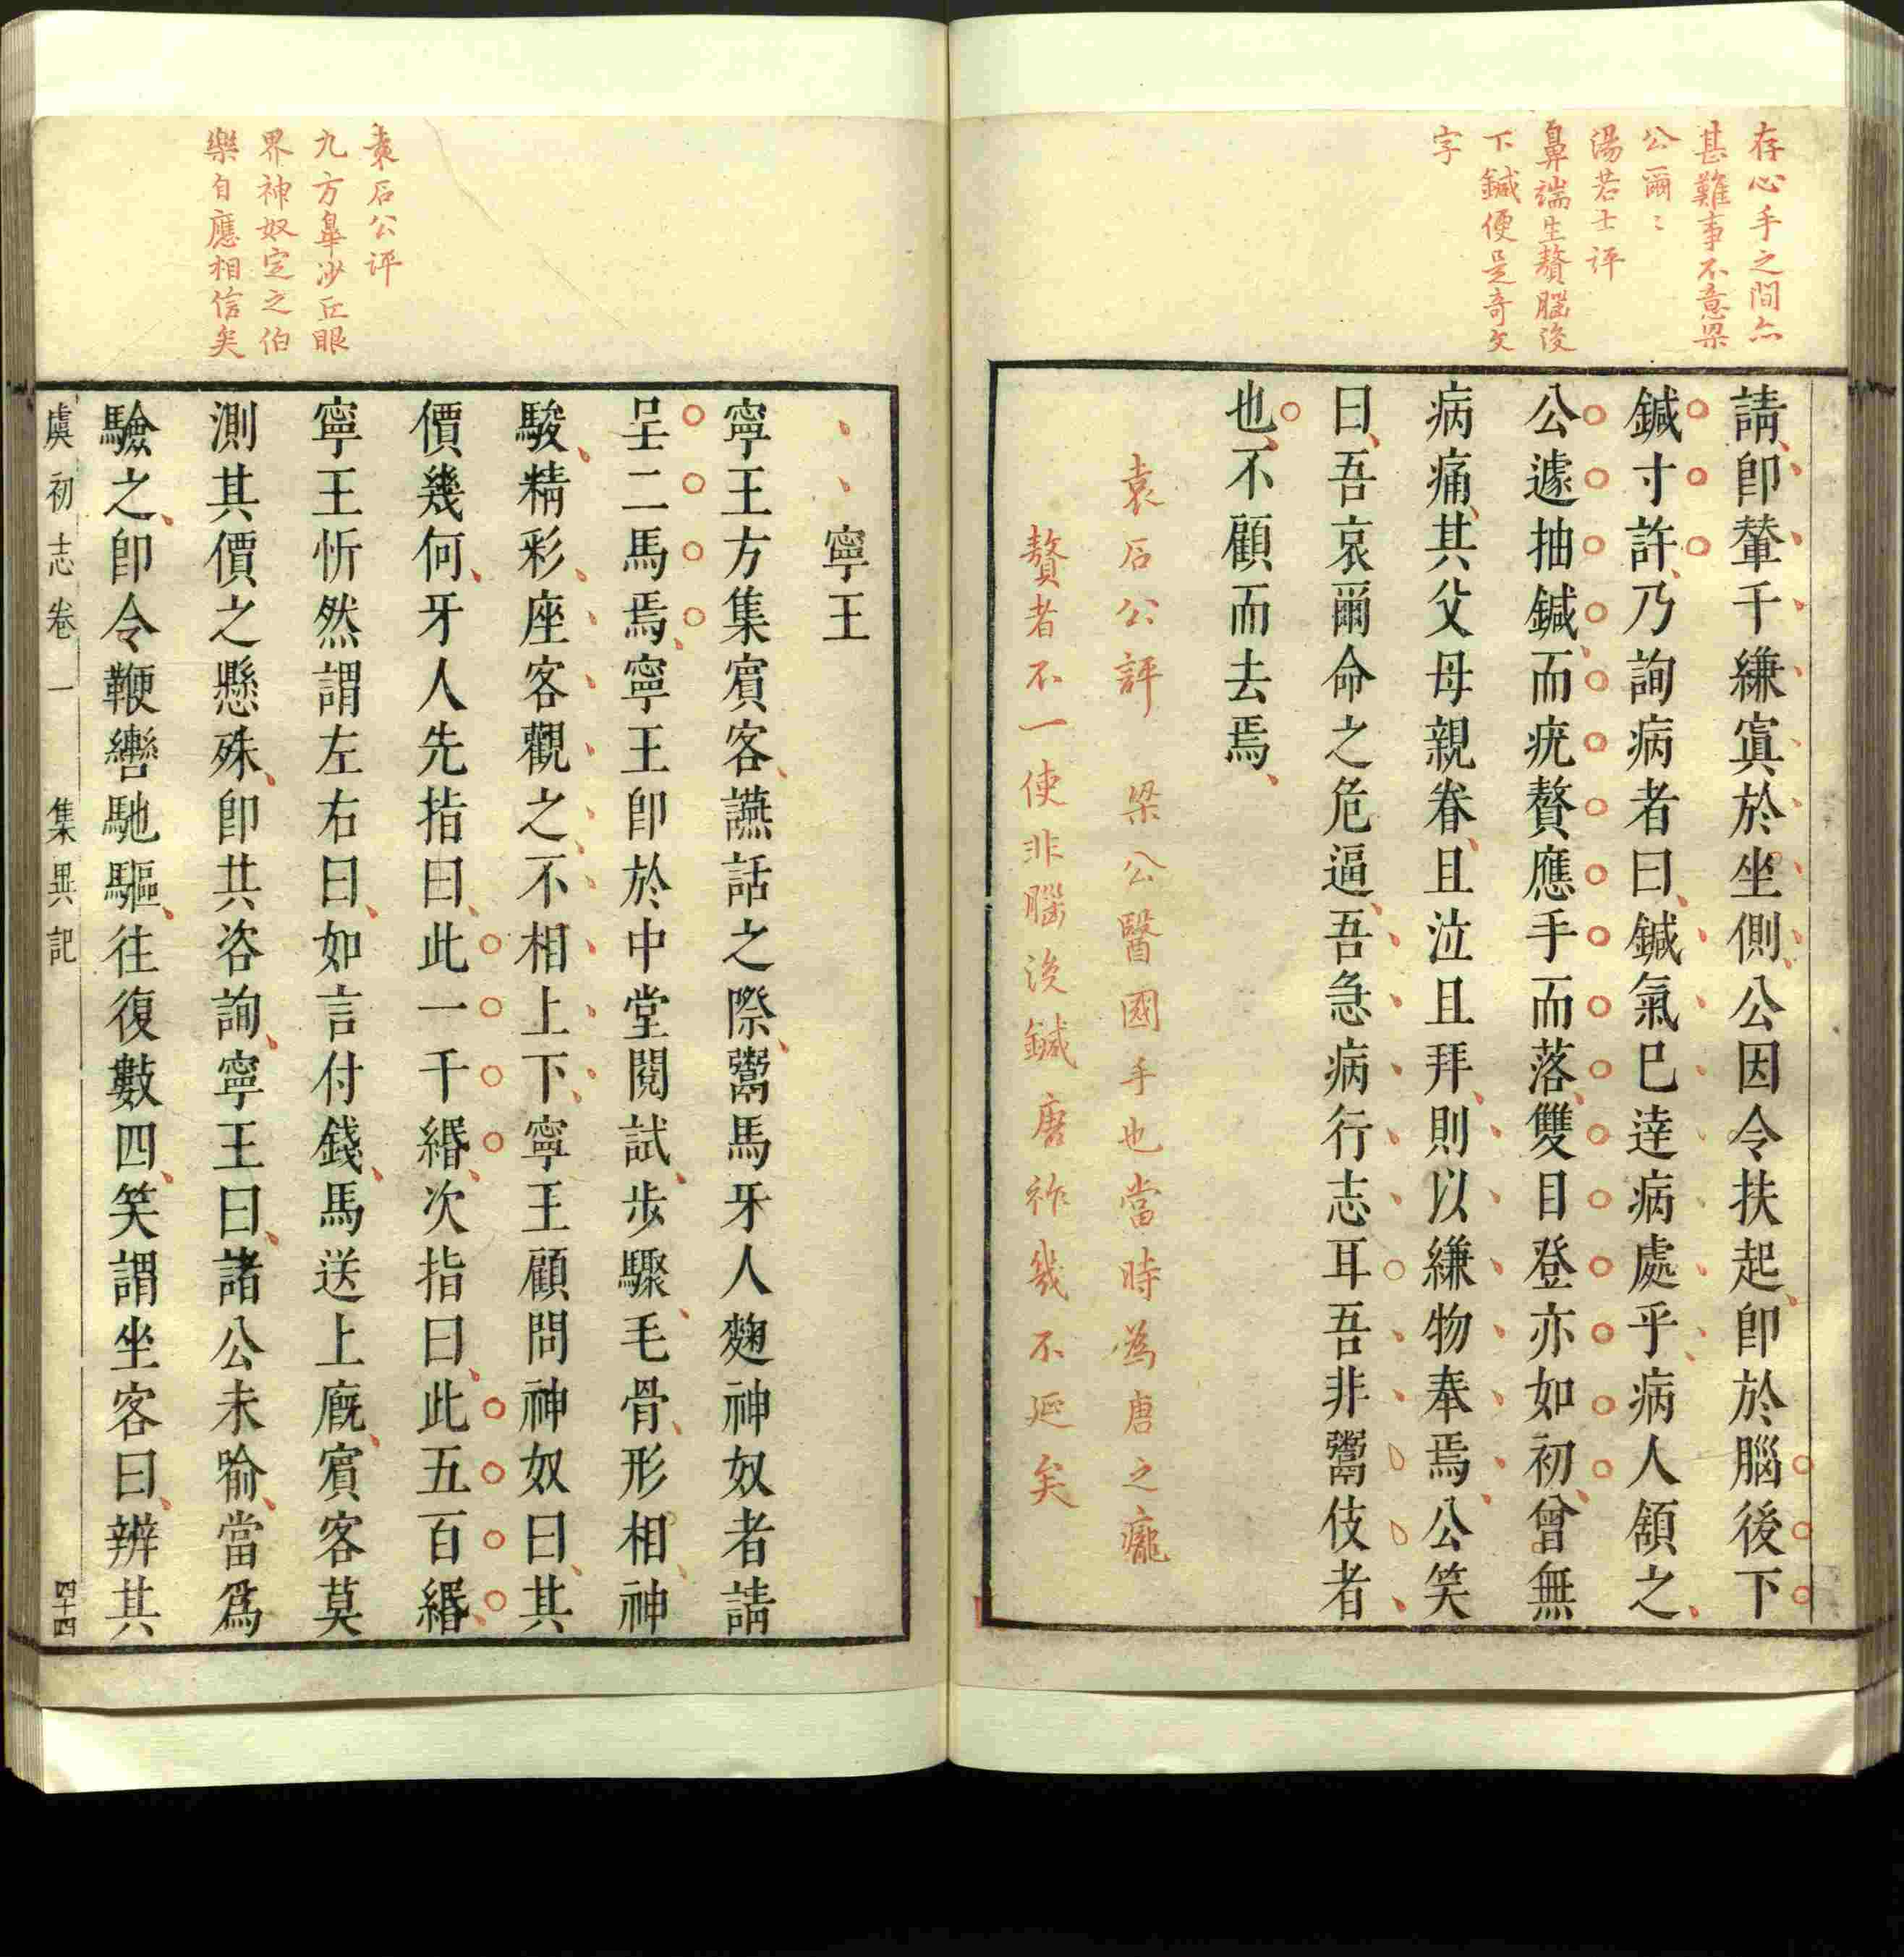 存心手之間亦
甚難事不意梁
公爾〻
湯若士評
鼻端生贅腦後
下鍼便是奇文
字
請即輦千縑寘於坐側公因令扶起即於腦後下
鍼寸許乃詢病者曰鍼氣巳達病處乎病人頷之
公遽抽鍼而疣贅應手而落雙目登亦如初曾無
病痛其父母親眷且泣且拜則以縑物奉焉公笑
曰吾哀爾命之危逼吾急病行志耳吾非鬻伎者
也不顧而去焉
袁石公評 梁公醫國手也當時為唐之癰
贅者不一使非腦後鍼唐祚幾不延矣
袁石公評
九方皐沙丘眼
界神奴定之伯
樂自應相信矣
寧王
寧王方集賓客讌話之際鬻馬牙人麴神奴者請
呈二馬焉寧王即於中堂閱試步驟毛骨形相神
駿精彩座客觀之不相上下寧王顧問神奴曰其
價幾何牙人先指曰此一千緡次指曰此五百緡
寧王忻然謂左右曰如言付錢馬送上廐賓客莫
測其價之懸殊即共咨詢寧王曰諸公未喻當爲
驗之即令鞭轡馳驅往復數四笑謂坐客曰辨其
虞初志卷一 集異記 四十四